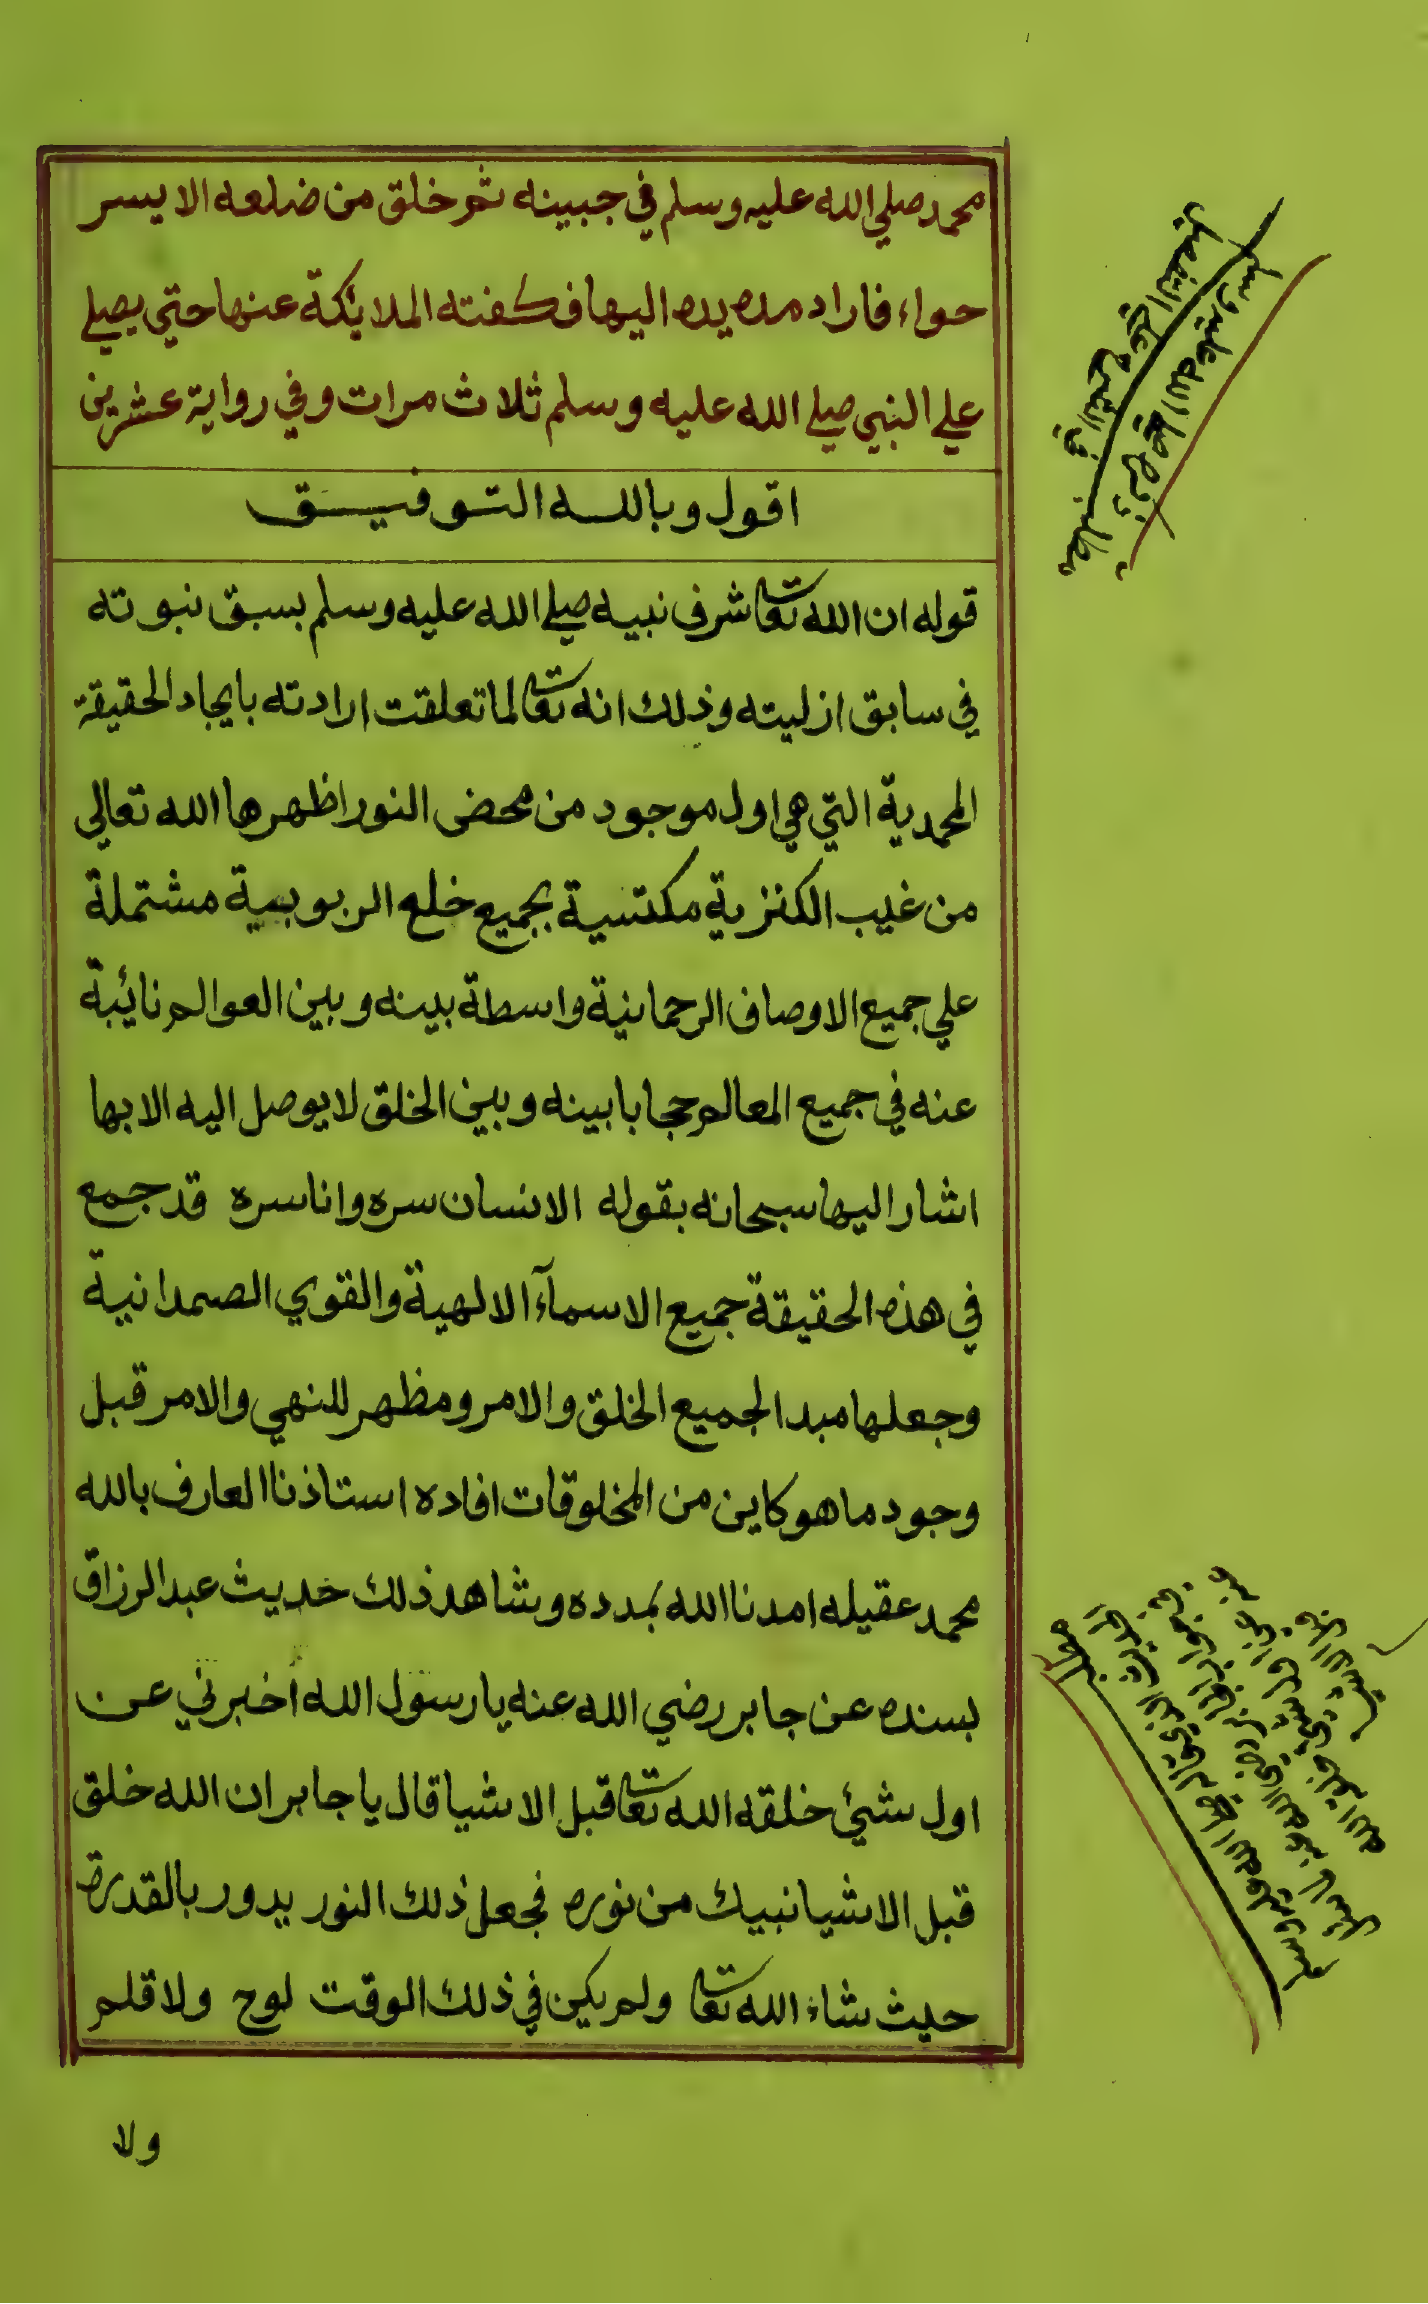 محمد صلي الله عليه وسلم في جبينه ثم خلق من ضلعه الايسر
حواء فاراد مده يده اليها فكفته الملائكة عنها حتي يصلي
علي النبي صلي الله عليه وسلم ثلاث مرات وفي رواية عشرين
اقول وبالله التوفيق
قوله ان الله تعا شرف نبيه صلي الله عليه وسلم بسبق نبوته
في سابق ازليته وذلك انه تعا لما تعلقت ارادته بايجاد الحقيقة
المحمدية التي هي اول موجود من محض النور اظهرها الله تعالي
من غيب الكنزية مكتسية بجميع خلع الربوبية مشتملة
علي جميع الاوصاف الرحمانية واسطة بينه وبين العوالم نائبة
عنه في جميع المعالم حجابا بينه وبين الخلق لا يوصل اليه الا بها
اشار اليها سبحانه بقوله الانسان سره وانا سره قد جمع
في هذه الحقيقة جميع الاسمآء الالهية والقوي الصمدانية
وجعلها مبدا لجميع الخلق والامر ومظهر للنهي والامر قبل
وجود ما هو كاين من المخلوقات افاده استاذنا العارف بالله
محمد عقيله امدنا الله بمدده وشاهد ذلك حديث عبد الرزاق
بسنده عن جابر رضي الله عنه يا رسول الله أخبرني عن
اول شيئ خلقه الله تعا قبل الاشيا قال يا جابر ان الله خلق
قبل الاشيا نبيك من نوره فجعل ذلك النور يدور بالقدرة
حيث شاء الله تعا ولم يكن في ذلك الوقت لوح ولا قلم
ولا
مطلب في الشرح علي التفصيل
صلي الله عليه وسلم
مطلب
الحديث الذي قاله صلي الله عليه وسلم
رضي الله عنه لما سئل
عن اي شيئ خلق الله
قبل الاشيا